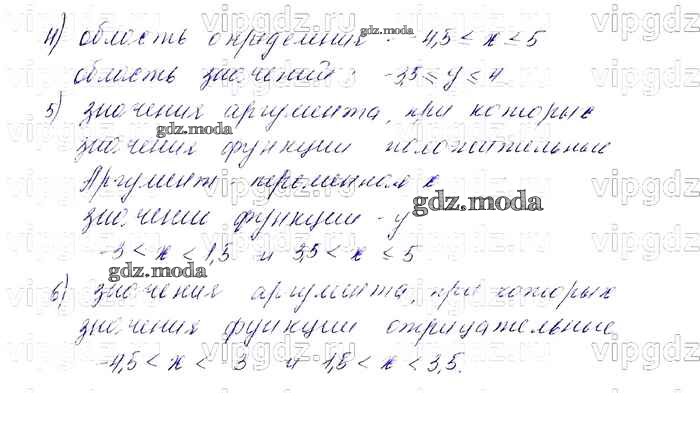 4) область определения: -4,5 ≤ x ≤ 5
область значений: -3,5 ≤ y ≤ 4
5) значения аргумента, при которых
значения функции положительные
Аргумент - переменная x
значении функции - y
-3 < x < 1,5 и 3,5 < x ≤ 5
6) значения аргумента, при которых
значения функции отрицательные
-4,5 < x < 3 и 1,5 < x < 3,5.
gdz.moda
gdz.moda
gdz.moda
gdz.moda
gdz.moda